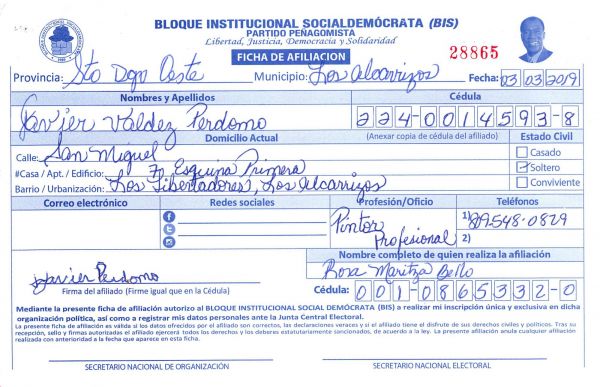 BLOQUE INSTITUCIONAL SOCIALDEMÓCRATA (BIS)
PARTIDO PEÑAGOMISTA
Libertad, Justicia, Democracia y Solidaridad
FICHA DE AFILIACIÓN
28865
Provincia: Sto Dgo Oeste Municipio: Los Alcarrizos Fecha: 03 03 2019
Nombres y Apellidos Cédula
Javier Valdez Perdomo 224-0014593-8
Domicilio Actual (Anexar copia de cédula del afiliado) Estado Civil
Calle: San Miguel Casado
#Casa / Apt. / Edificio: 70 Esquina Primera Soltero
Barrio / Urbanización: Los Libertadores, Los Alcarrizos Conviviente
Correo electrónico Redes sociales Profesión/Oficio Teléfonos
Pintor Profesional 1) 829.548.0829
2)
Nombre completo de quien realiza la afiliación
Javier Perdomo Rosa Maritza Bello
Firma del afiliado (Firme igual que en la Cédula) Cédula: 001-0865332-0
Mediante la presente ficha de afiliación autorizo al BLOQUE INSTITUCIONAL SOCIAL DEMÓCRATA (BIS) a realizar mi inscripción única y exclusiva en dicha
organización política, así como a registrar mis datos personales ante la Junta Central Electoral.
La presente ficha de afiliación es válida si los datos ofrecidos por el afiliado son correctos, las declaraciones veraces y si el afiliado tiene el disfrute de sus derechos civiles y políticos. Tras su
recepción, sello y firmas autorizadas el afiliado ejercerá todos los derechos y los deberes estatutariamente sancionados, de acuerdo a la ley. La presente afiliación anula cualquier afiliación
realizada con anterioridad a la fecha que aparece en esta ficha.
SECRETARIO NACIONAL DE ORGANIZACIÓN SECRETARIO NACIONAL ELECTORAL